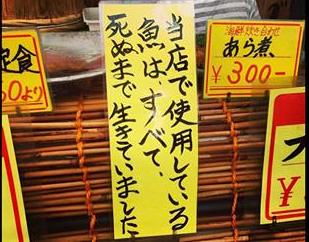 当店で使用している
魚は、すべて、
死ぬまで生きていました
海鮮炊き合わせ
あら煮
¥300-
定食
0より
¥